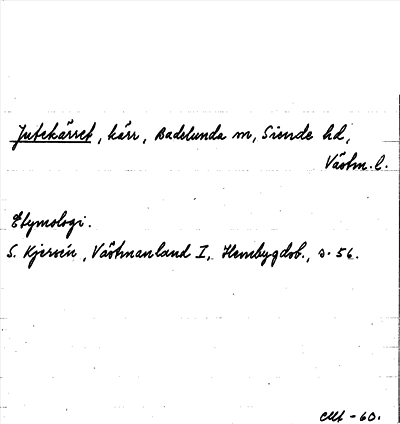 Jutekärret, kärr, Badelunda sn, Siende hd,
Västm. l.
Etymologi.
S. Kjersén, Västmanland I, Hembygdsb., s. 56.
-60.